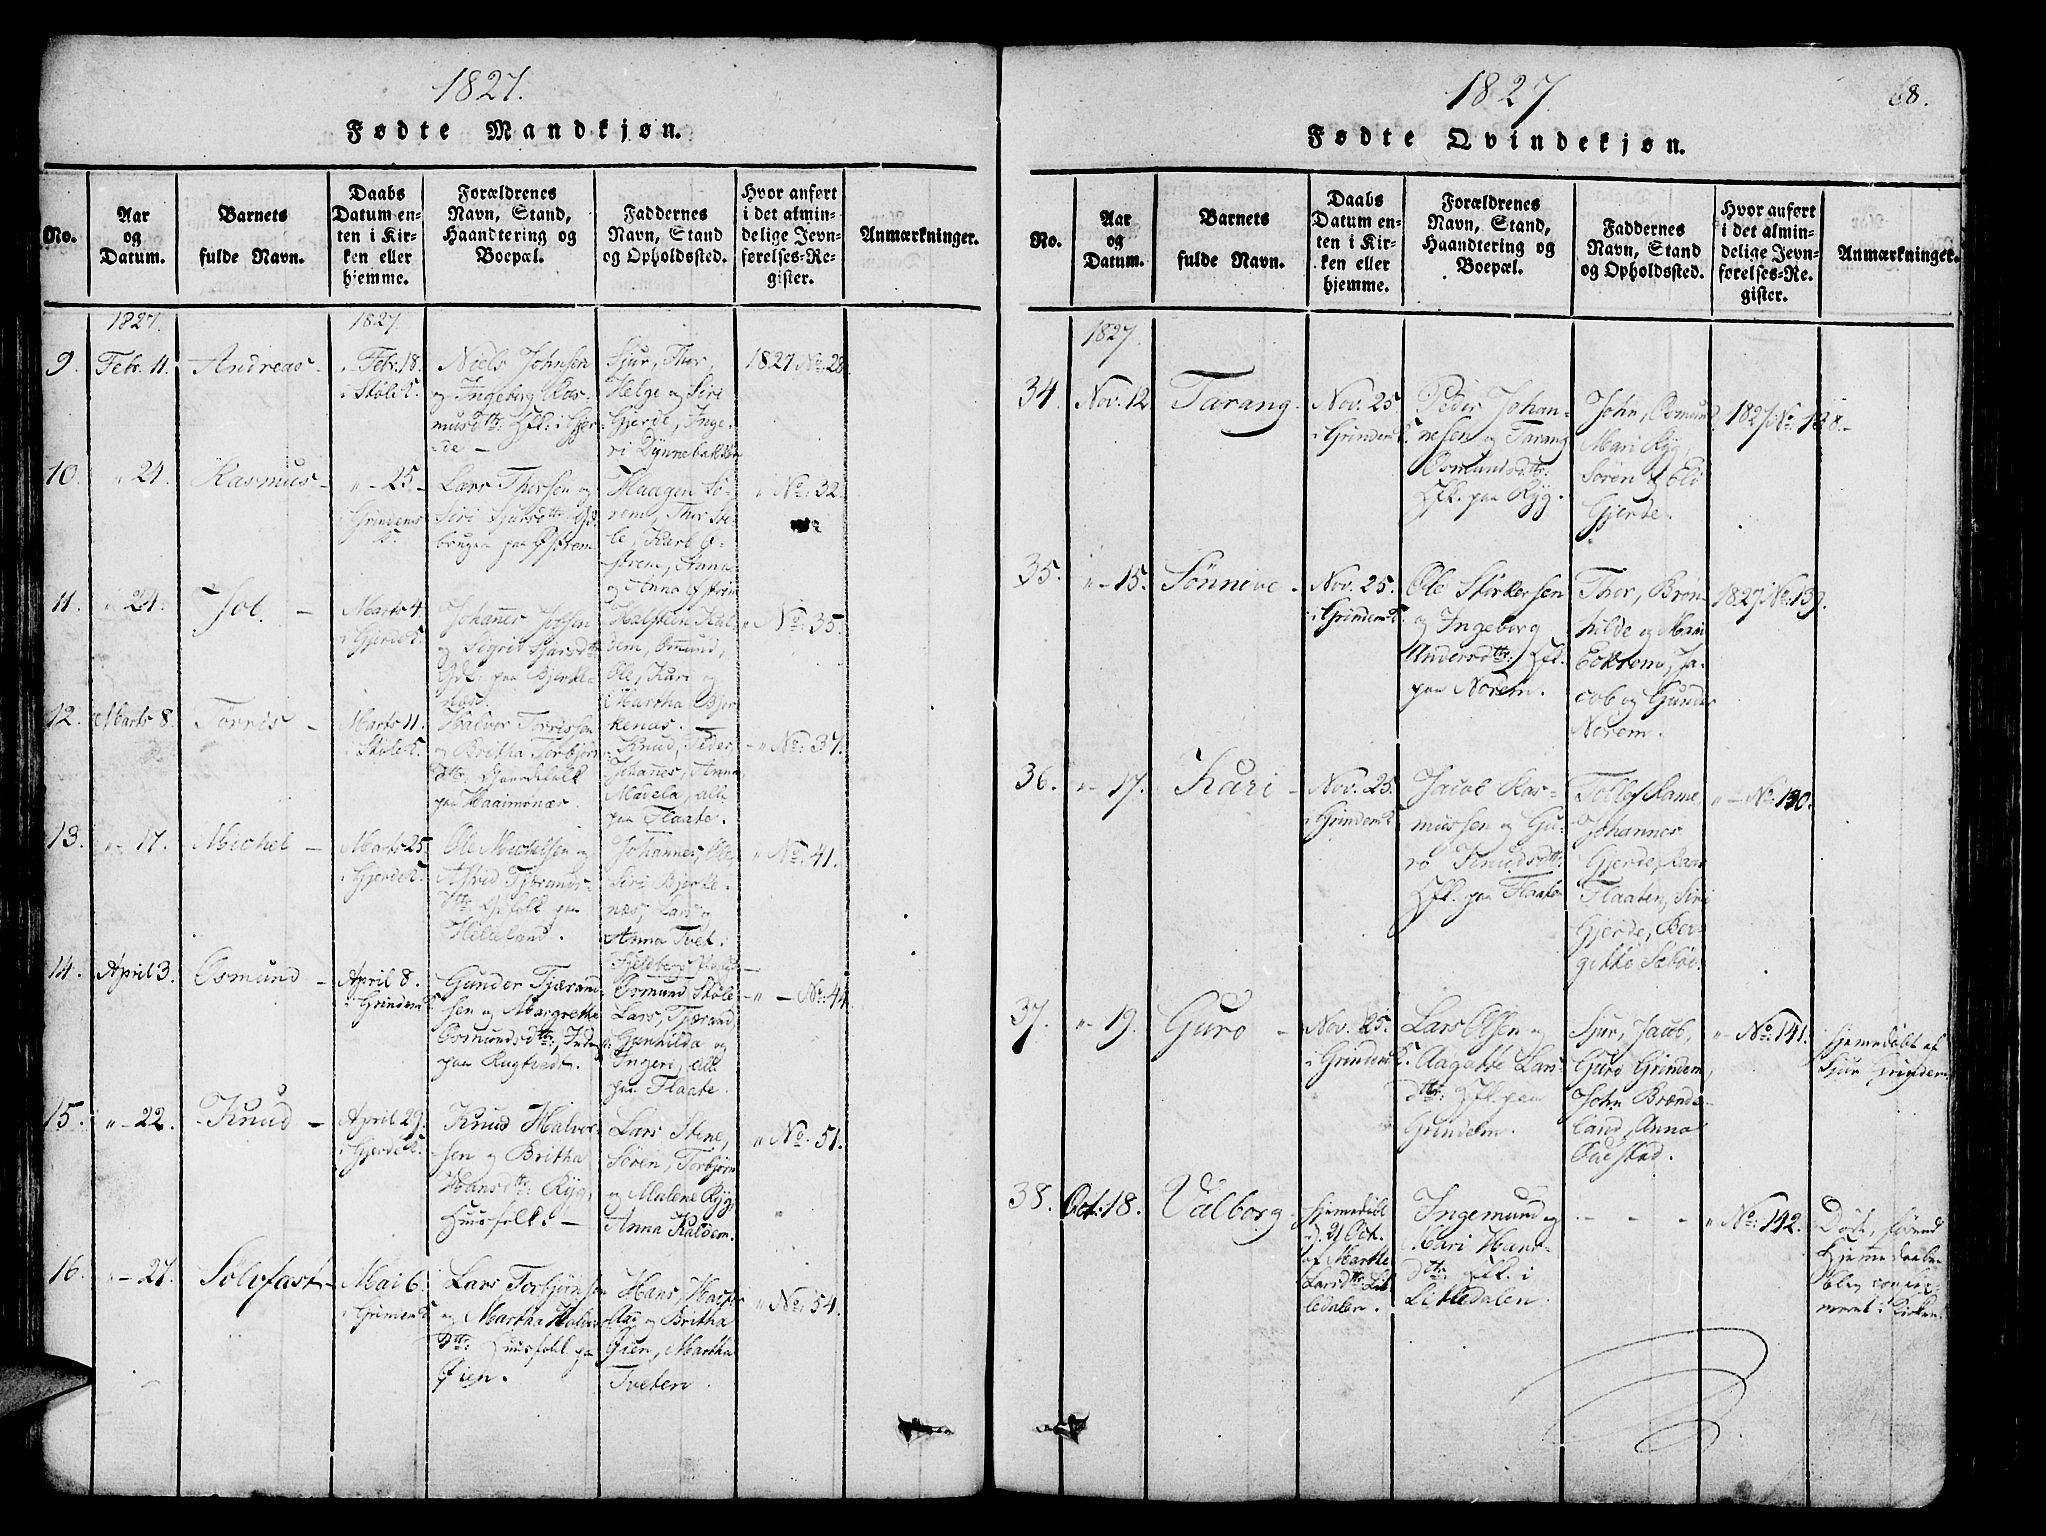 1827.
Fødte Mandkjøn.
No.
Aar
og
Datum.
Barnets
fulde Navn.
Daabs
Datum en-
ten i Kir-
ken eller
hjemme.
Forældrenes
Navn, Stand,
Haandtering og
Boepæl.
Faddernes
Navn, Stand
og Opholdssted.
Hvor anført
i det almin-
delige Jevn-
førelses-Re-
gister.
Anmærkninger.
1827.
1827.
9.
Febr. 11.
Andreas
Febr. 18.
i Skole K.
Niels Johnsen
og Ingeborg Ras-
musdtr: Hfl: i Gjer-
de
Sjur, Thor,
Helge og Siri
Gjerde, Inge-
ri Dynnebakken
1827 No. 28.
10.
" 24.
Rasmus
" 25
i Grindems
K.
Lars Thorsen og
Siri Sjursdtr. Gd.
bruger paa Østrem
Haagen
rem, Thor
le, Kari Ø-
strem, Anna
og Anna Østrem
" No: 32.
11.
" 24.
Jol.
Marts 4
i Gjerde K.
Johannes
og Sigrid Sjursdtr
paa Bjerke-
næs.
Halsten Kal-
dem, Omund,
Ole, Kari og
Martha Bjer
kenæs.
" No: 35.
12.
Marts 8
Torris
Marts 11.
i Skole K.
Halvor Torrissen
og Britha Torbjørns
dtr: Gaardefolk
paa Haaimonæs.
Knud, Peder,
Johannes, Anna
Madela, alle
paa Flaate.
" No: 37.
13.
" 17.
Michel
Marts 25.
i Gjerde K.
Ole Michelsen og
Astrid Tjerands-
dtr: Gdfolk paa
Helleland.
Johannes, Ole
Siri Bjerke-
næs, Lars og
Anna Tvet i
Fjeldberg
" No: 41.
14.
April 3.
Osmund
April 8.
i Grindem K.
Gunder Tjærand-
sen og Margrethe
Osmundsdtr:
paa Rugtvedt.
Osmund Skole
Lars, Tjærand,
Gunhilda og
Ingeri, alle
paa Flaate.
" No: 44.
15.
" 22.
Knud
April 29.
i Gjerde K.
Knud Halvor-
sen og Britha
Hansdtr: Ryg,
Huusfolk.
Lars Stene,
Søren, Torbjørn
og Malene Ryg,
Anna Kaldem.
" No. 51.
16.
" 27.
Solvfast
Mai 6.
i Grinem K.
Lars Torbjørnsen
og Martha Halvors
dtr: Huusfolk paa
Øien.
Hans,
og Britha
Øien, Martha
Tveten.
" No: 54.
68.
1827
Fødte Qvindekjøn.
No.
Aar
og
Datum.
Barnets
fulde Navn.
Daabs
Datum en-
ten i Kir-
ken eller
hjemme.
Forældrenes
Navn, Stand,
Haandtering og
Boepæl.
Faddernes
Navn, Stand
og Opholdssted.
Hvor anført
i det almin-
delige Jevn-
førelses-Re-
gister.
Anmærkninger.
1827.
34.
Nov. 12.
Tarang
Nov. 25
i Grindem K.
Peder Johan-
nesen og Tarang
Osmundsdtr:
Hfl. paa Ryg.
John, Osmund
Mari Ryg,
Søren og
Gjerde.
1827 No. 138.
35.
" 15.
Sønneve
Nov. 25.
i Grindem K.
Ole Størkersen
og Ingeborg
Andersdtr: Hfl.
paa Norem.
Thor, Brøn-
hilde og Mari
Eckrem, Ja-
cob og Gunder
Norem.
1827 No. 139.
36.
" 17.
Kari
Nov. 25.
i Grindem K.
Jacob Ras-
mussen og Gu-
ro Knudsdtr:
Hfl. paa Flaate
Tollef Rame
Johannes
Gjerde,
Flaaten, Siri
Gjerde, Ber-
gitthe Sæbøe.
" No. 140.
37.
" 19.
Guro
Nov. 25.
i Grindem K.
Lars Olsen og
Aagatte Lars-
dtr: Hfl. paa
Grindem.
Sjur, Jacob,
Guro Grindem,
John Brænde-
land, Anna
Østad.
" No: 141.
hjemedøbt af
Sjur Grindem
38.
Oct: 18.
Valborg
hjemedøbt
d. 21 Oct.
af Marthe
Larsdtr: Lit-
ledalen.
Ingemund og
Mari Hans-
dtr: Hfl. i
Litledalen.
" No: 142.
Død, førend
Hjemedaaben
blev confir-
meret i Kirken.